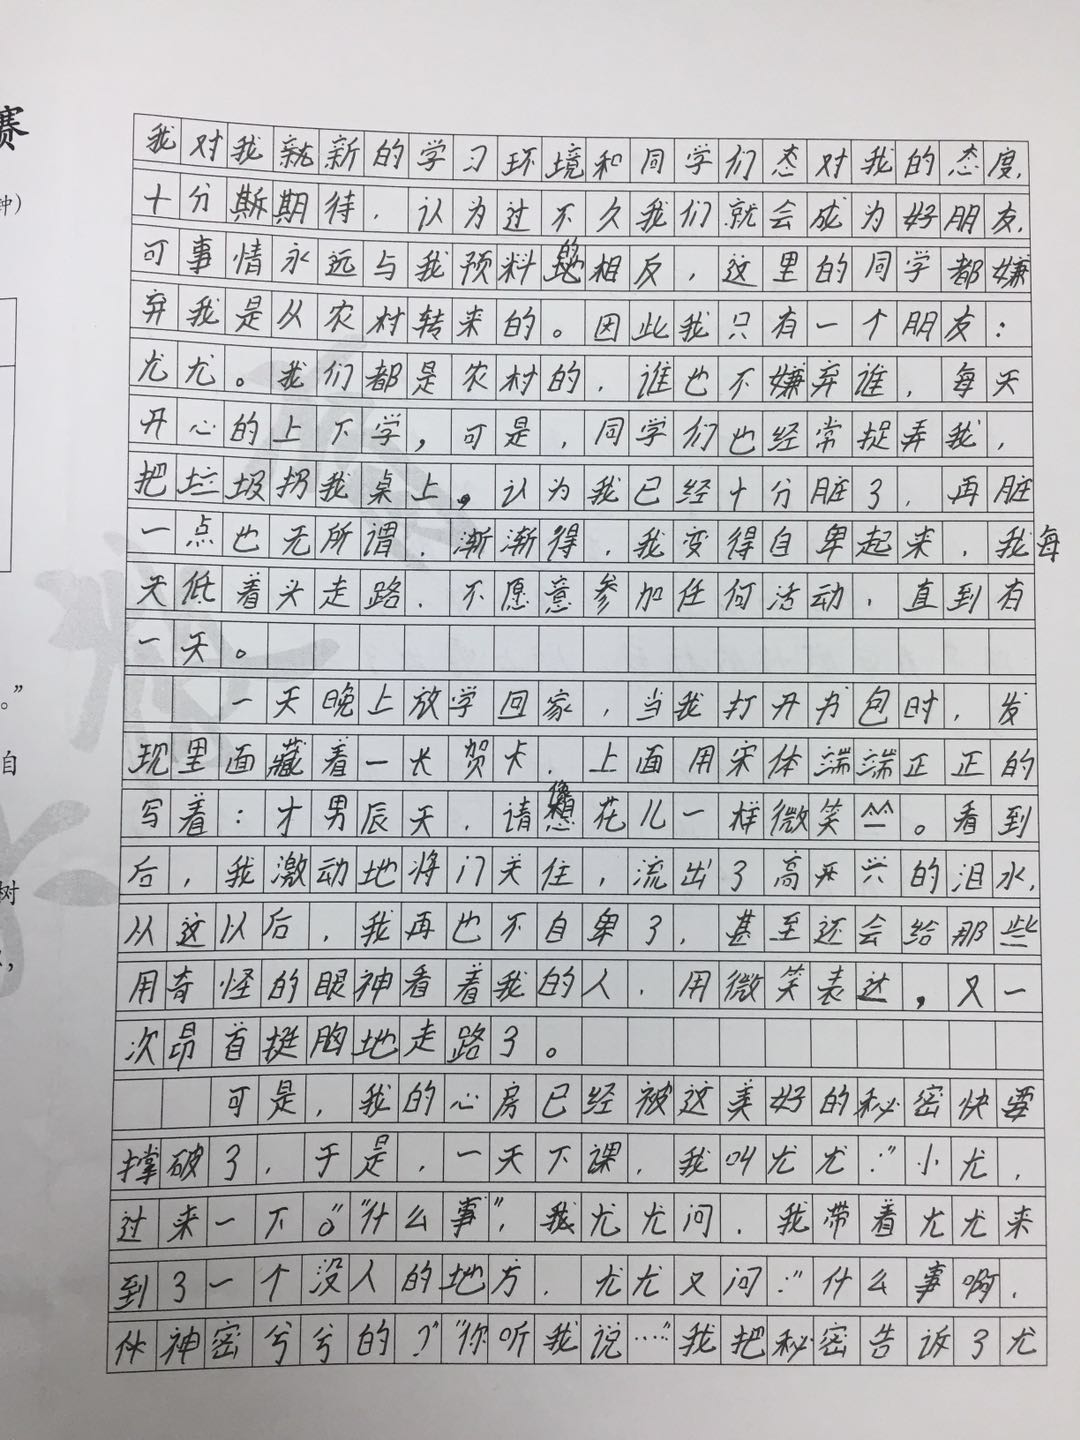 赛
钟）
。”
自
树
我对我新的学习环境和同学们态对我的态度，
十分期待，认为过不久我们就会成为好朋友，
可事情永远与我预料的相反，这里的同学都嫌
弃我是从农村转来的。因此我只有一个朋友：
尤尤。我们都是农村的，谁也不嫌弃谁，每天
开心的上下学，可是，同学们也经常捉弄我，
把垃圾扔我桌上，认为我已经十分脏了，再脏
一点也无所谓，渐渐得，我变得自卑起来，我每
天低着头走路，不愿意参加任何活动，直到有
一天。
一天晚上放学回家，当我打开书包时，发
现里面藏着一长贺卡，上面用宋体端端正正的
写着：才男辰天，请像花儿一样微笑。看到
后，我激动地将门关住，流出了高兴的泪水，
从这以后，我再也不自卑了，甚至还会给那些
用奇怪的眼神看着我的人，用微笑表达，又一
次昂首挺胸地走路了。
可是，我的心房已经被这美好的秘密快要
撑破了，于是，一天下课，我叫尤尤：“小尤，
过来一下。”“什么事”，我尤尤问，我带着尤尤来
到了一个没人的地方，尤尤又问：“什么事啊，
神密兮兮的？”“你听我说……”我把秘密告诉了尤